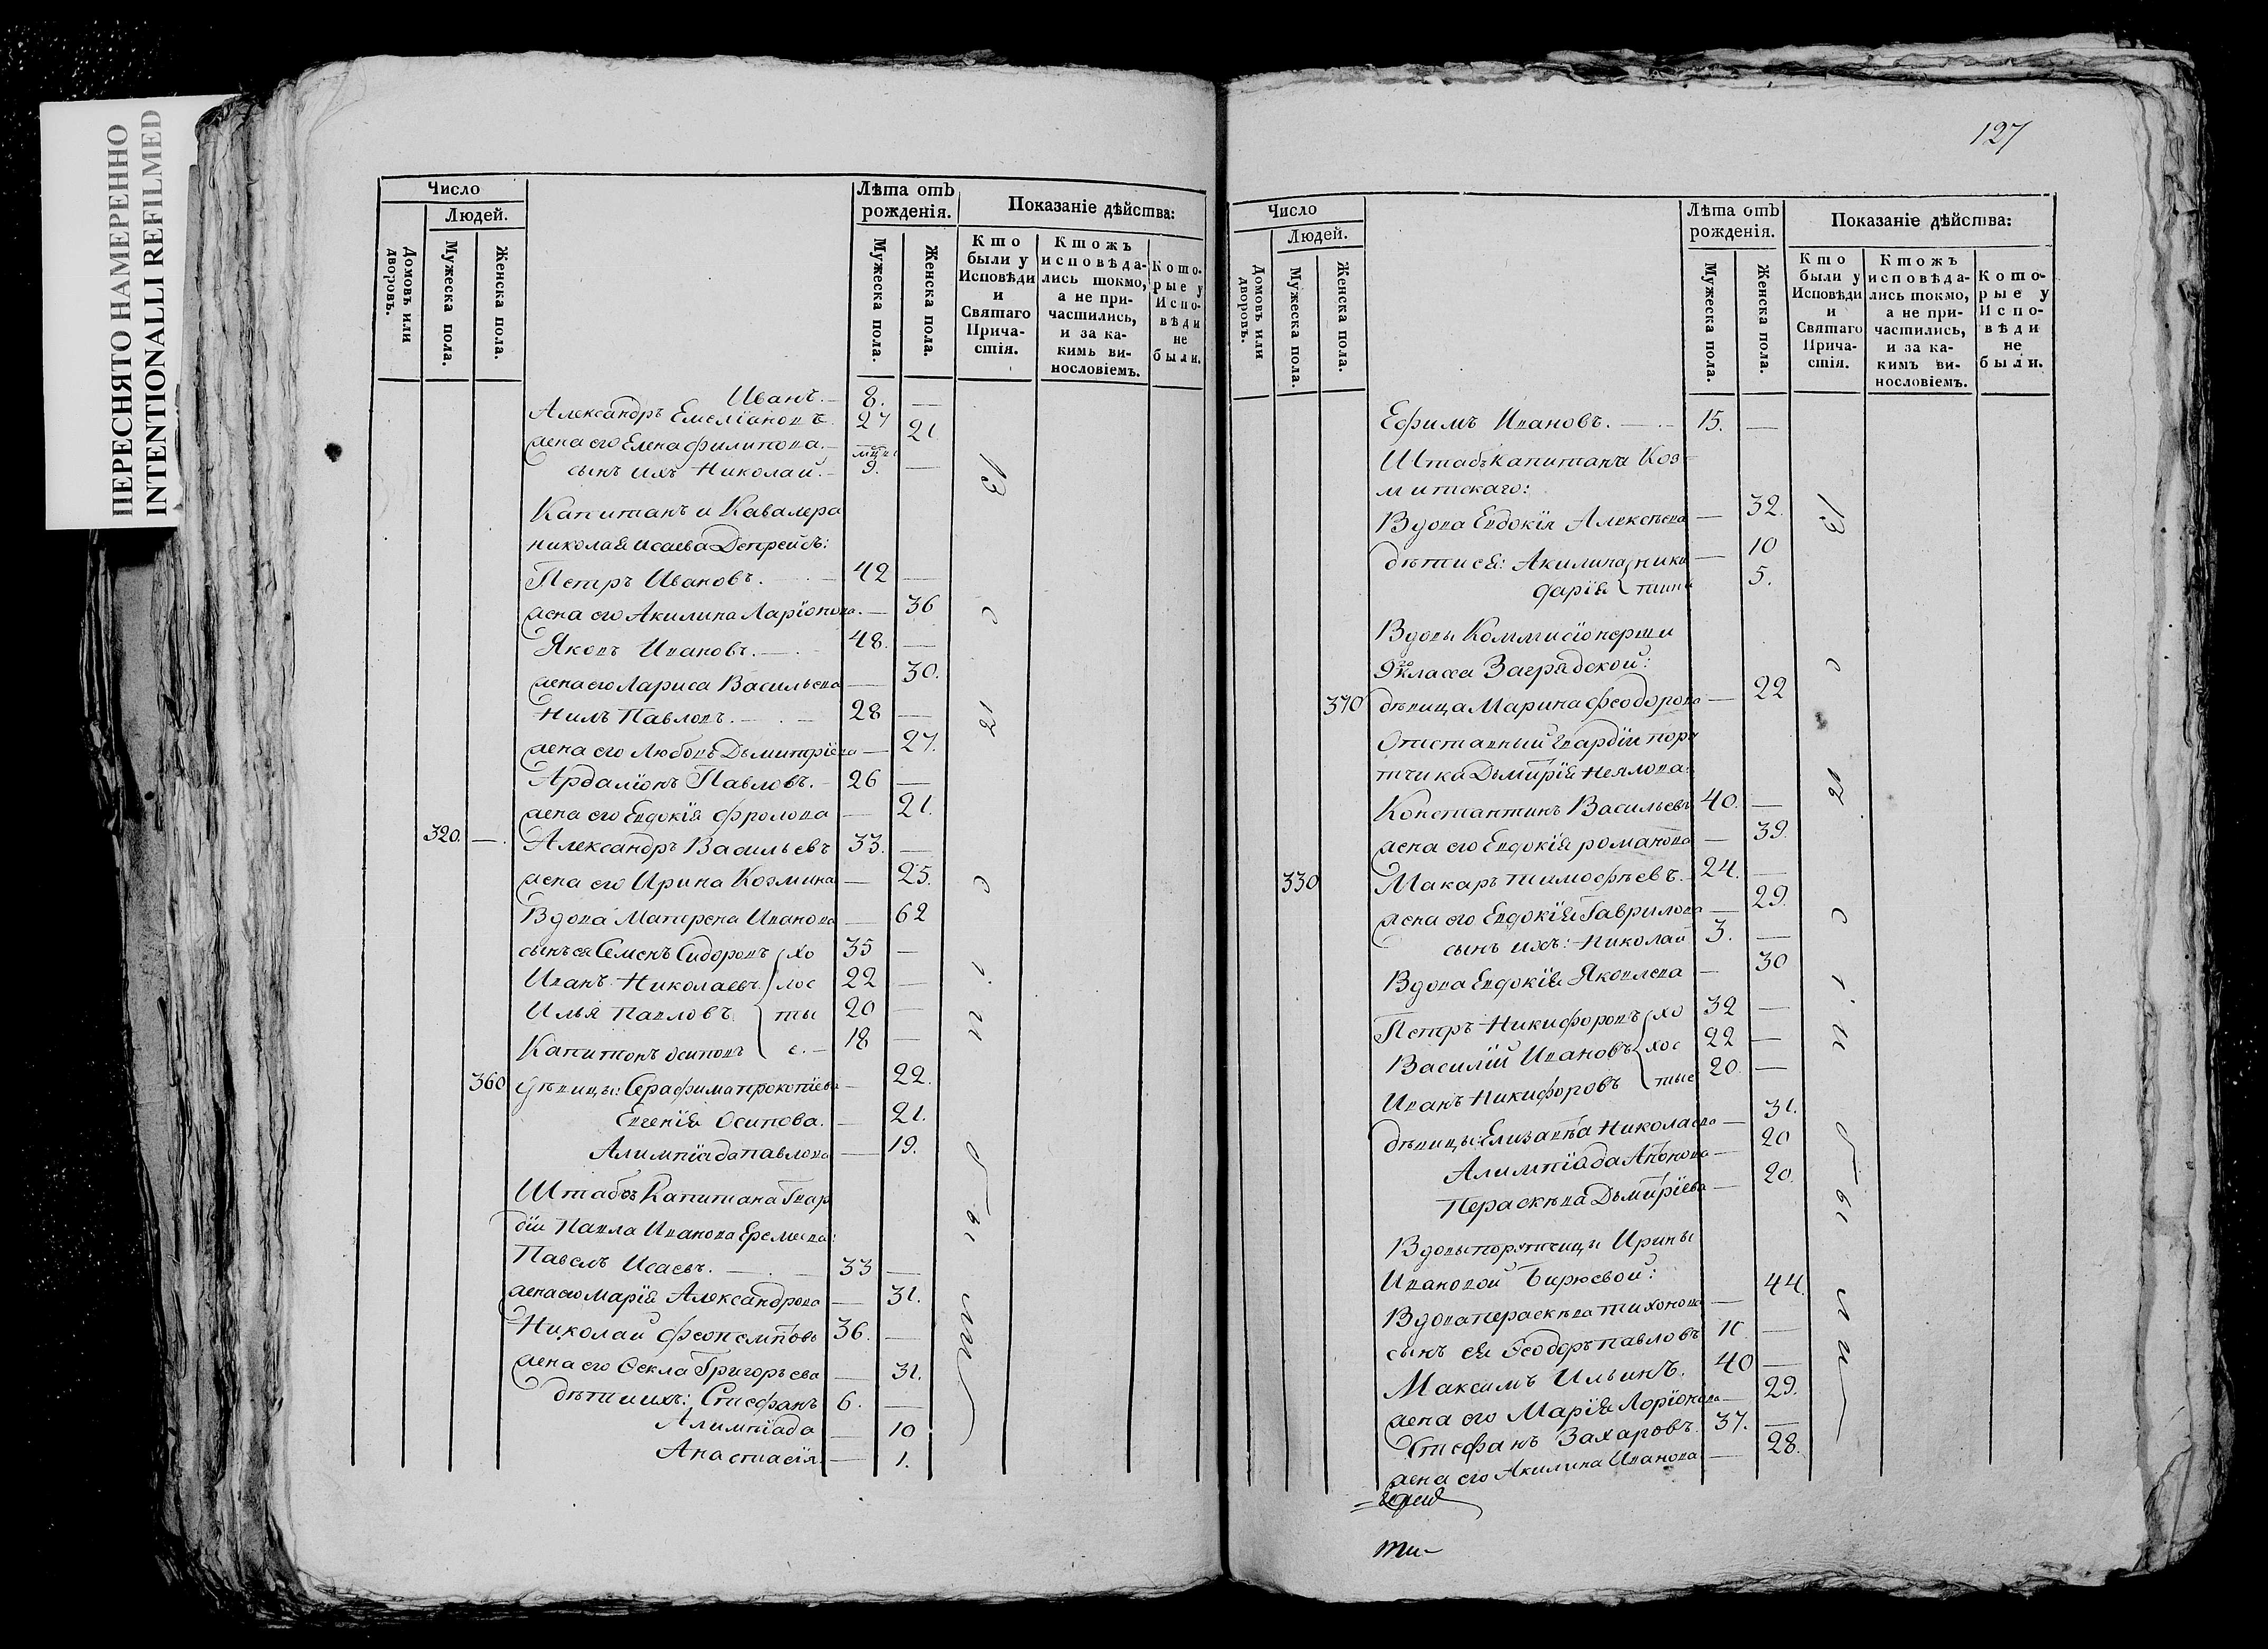 ПЕРЕСНЯТО НАМЕРЕННО
INTENTIONALLI REFILMED
Число
Людей.
Домовъ или дворовъ.
Мужеска пола.
Женска пола.
Лѣта отъ рожденія.
Мужеска пола.
Женска пола.
Показаніе дѣйства:
Кто были у Исповѣди и Святаго Причастія.
Ктожъ исповѣдались токмо, а не причастились, и за какимъ винословіемъ.
Которые у Исповѣди не были.
Иванъ. — 8. —
Александръ Емелїановъ 27
жена его Елена филипова. — 21
сынъ ихъ Николай. — 9. —
Капитанъ и Кавалера
николая Исаева
Петръ Ивановъ. — 42 —
жена его Акилина Ларїонова. — 36
Яковъ Ивановъ. — 48. —
жена его Лариса Васильева — 30.
Нилъ Павловъ. — 28 —
жена его Любовь Дьмитрїева — 27.
Ардалїонъ Павловъ. — 26 —
жена его Евдокїя фролова — 21.
320. — Александръ Васильевъ 33. —
жена его Ирина Козмина — 25.
Вдова Матрена Иванова — 62
сынъ ея Семенъ Сидоровъ хо 35 —
Иванъ Николаевъ лос 22 —
Илья Павловъ ты 20 —
Капитонъ осиповъ е. — 18 —
360 дѣвицы: Серафима прокопїева — 22.
Евгенїя Осипова. — 21.
Алимпїада павлова — 19.
Штабъ Капитана Гвар
дїи Павла Иванова Еремеева:
Павелъ Исаевъ. — 33 —
жена его Марїя Александрова — 31.
Николай феопемптовъ 36. —
жена его Ѳекла Григорьева — 31.
дѣти ихъ: Стефанъ 6. —
Алимпїада — 10
Анастасїя. — 1.
127
Число
Людей.
Домовъ или дворовъ.
Мужеска пола.
Женска пола.
Лѣта отъ рожденія.
Мужеска пола.
Женска пола.
Показаніе дѣйства:
Кто были у Исповѣди и Святаго Причастія.
Ктожъ исповѣдались токмо, а не причастились, и за какимъ винословіемъ.
Которые у Исповѣди не были.
Ефимъ Ивановъ. — 15. —
Штабъ капитана Коз
митскаго:
Вдова Евдокїя Алексѣева — 32.
дѣти ея: Акилина ники — 10
дарїя тины 5.
Вдовы Коммисїонерши
9го класса Заградской:
370 дѣвица Марина феодорова — 22
Отставный Гвардїи пору
тчика Дьмитрїя Неялова:
Константинъ Васильевъ 40. —
жена его Евдокїя романова — 39.
330 Макаръ тимофѣевъ. 24. —
жена его Евдокїя Гаврилова — 29.
сынъ ихъ: Николай 3. —
Вдова Евдокїя Яковлева — 30
Петръ Никифоровъ хо 32 —
Василїй Ивановъ лос 22 —
Иванъ Никифоровъ тые 20. —
дѣвицы: Елизавѣта Николаева — 31.
Алимпїада Антонова — 20
Пераскѣва Дьмитрїева — 20.
Вдовы порутчицы Ирины
Ивановой Бирюевой:
Вдова пераскѣва тихонова — 44.
сынъ ея Ѳеодоръ павловъ 11. —
Максимъ Ильинъ. 40 —
жена его Марїя Ларїонова — 29.
Стефанъ Захаровъ. 37. —
жена его Акилина Иванова — 28.
ти-